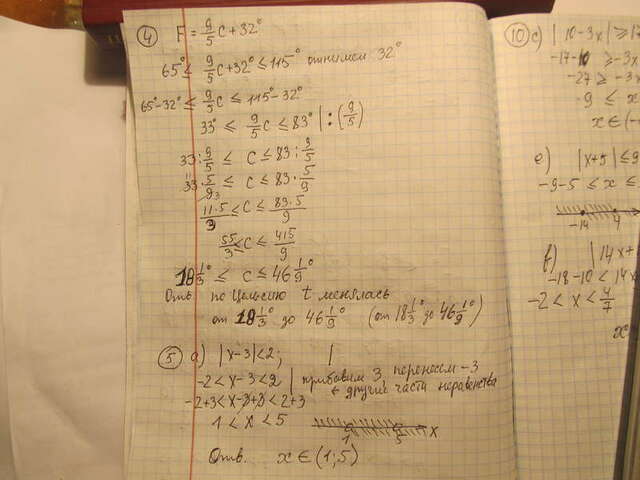 ④ F = 9/5 C + 32°
65° ≤ 9/5 C + 32° ≤ 115° отнимем 32°
65° - 32° ≤ 9/5 C ≤ 115° - 32°
33° ≤ 9/5 C ≤ 83° | : (9/5)
33 : 9/5 ≤ C ≤ 83 : 9/5
33 · 5/9 3 ≤ C ≤ 83 · 5/9
11·5/3 ≤ C ≤ 83·5/9
55/3 ≤ C ≤ 415/9
18 1/3° ≤ C ≤ 46 1/9°
Отв. по Цельсию t менялась
от 18 1/3° до 46 1/9° (от 18 1/3° до 46 1/9°)
⑤ a) |x-3| < 2; |
-2 < x-3 < 2 | прибавим 3, перенесем -3
в другие части неравенства
-2+3 < x-3+3 < 2+3
1 < x < 5
1 5 x
Отв. x ∈ (1; 5)
⑩ c) | 10-3x | ≥ 17
-17-10 ≥ -3x
-27 ≥ -3x
9 ≤ x
x ∈ (-
e) |x+5| ≤ 9
-9-5 ≤ x ≤
-14 4
f) | 14x+
-18-10 < 14x
-2 < x < 4/7
x